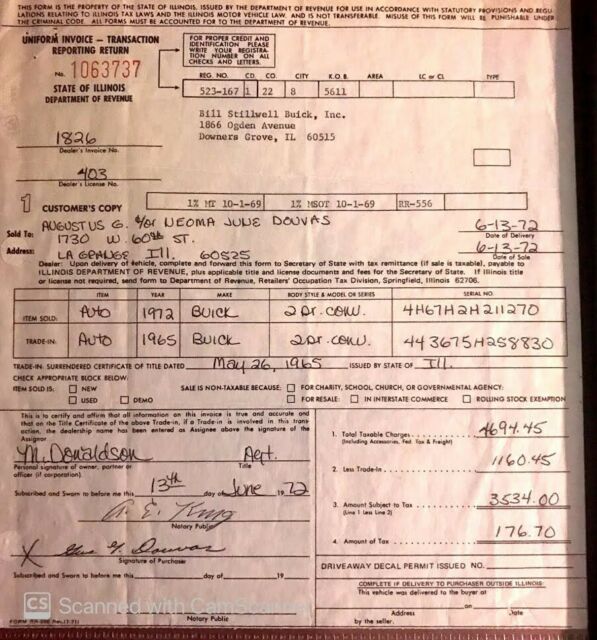 THIS FORM IS THE PROPERTY OF THE STATE OF ILLINOIS, ISSUED BY THE DEPARTMENT OF REVENUE FOR USE IN ACCORDANCE WITH STATUTORY PROVISIONS AND REGU-
LATIONS RELATING TO ILLINOIS TAX LAWS AND THE ILLINOIS MOTOR VEHICLE LAW, AND IS NOT TRANSFERABLE. MISUSE OF THIS FORM WILL BE PUNISHABLE UNDER
THE CRIMINAL CODE. ALL FORMS MUST BE ACCOUNTED FOR TO THE DEPARTMENT OF REVENUE.
UNIFORM INVOICE — TRANSACTION
REPORTING RETURN
No. 1063737
STATE OF ILLINOIS
DEPARTMENT OF REVENUE
FOR PROPER CREDIT AND
IDENTIFICATION PLEASE
WRITE YOUR REGISTRA-
TION NUMBER ON ALL
CHECKS AND LETTERS.
REG. NO. CD. CO. CITY K.O.B. AREA LC or CL TYPE
523-167 1 22 8 5611
Bill Stillwell Buick, Inc.
1866 Ogden Avenue
Downers Grove, IL 60515
1826
Dealer's Invoice No.
403
Dealer's License No.
1 CUSTOMER'S COPY
1% MT 10-1-69 1% MSOT 10-1-69 RR-556
Sold To: AUGUSTUS G. &/or NEOMA JUNE DOUVAS 6-13-72
Date of Delivery
Address: 1730 W. 60th ST. 6-13-72
LA GRANGE Ill. 60525 Date of Sale
Dealer: Upon delivery of vehicle, complete and forward this form to Secretary of State with tax remittance (if sale is taxable), payable to
ILLINOIS DEPARTMENT OF REVENUE, plus applicable title and license documents and fees for the Secretary of State. If Illinois title
or license not required, send form to Department of Revenue, Retailers' Occupation Tax Division, Springfield, Illinois 62706.
ITEM YEAR MAKE BODY STYLE & MODEL OR SERIES SERIAL NO.
ITEM SOLD: Auto 1972 BUICK 2 DR. CONV. 4H67H2H211270
TRADE-IN: Auto 1965 BUICK 2 DR. CONV. 443675H258830
TRADE-IN: SURRENDERED CERTIFICATE OF TITLE DATED May 26, 1965 ISSUED BY STATE OF Ill.
CHECK APPROPRIATE BLOCK BELOW:
ITEM SOLD IS: NEW SALE IS NON-TAXABLE BECAUSE: FOR CHARITY, SCHOOL, CHURCH, OR GOVERNMENTAL AGENCY:
USED DEMO FOR RESALE: IN INTERSTATE COMMERCE ROLLING STOCK EXEMPTION
This is to certify and affirm that all information on this invoice is true and accurate and
that on the Title Certificate of the above Trade-in, if a Trade-in is involved in this trans-
action, the dealership name has been entered as Assignee above the signature of the
Assignor
M. Donaldson Agt.
Personal signature of owner, partner or Title
officer (if corporation).
Subscribed and Sworn to before me this 13th day of June 1972
Notary Public
X
Signature of Purchaser
Subscribed and Sworn to before me this day of 19
Notary Public
1. Total Taxable Charges 4694.45
(Including Accessories, Fed. Tax & Freight)
2. Less Trade-in 1160.45
3. Amount Subject to Tax 3534.00
(Line 1 Less Line 2)
4. Amount of Tax 176.70
DRIVEAWAY DECAL PERMIT ISSUED NO.
COMPLETE IF DELIVERY TO PURCHASER OUTSIDE ILLINOIS:
This vehicle was delivered to the buyer at
on
Address Date
by the seller.
CS Scanned with CamScanner